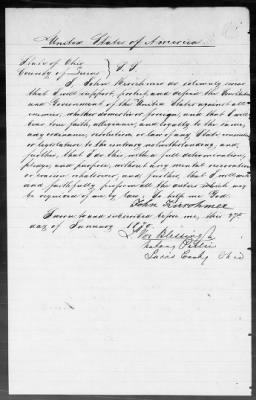 United States of America
State of Ohio
County of Lucas } S. S.
I, John Kirschner do solemnly swear
that I will support, protect and defend the Constitution
and Government of the United States against all
enemies, whether domestic or foreign, and that I will
bear true faith, allegiance, and loyalty to the same,
any ordinance, resolution or law of any State convention
or legislature to the contrary notwithstanding, and
further, that I do this with a full determination,
pledge, and purpose, without any mental reservation
or evasion whatsoever, and, further, that I will well
and faithfully perform all the duties which may
be required of me by law. So help me God.
John Kirschner
Sworn to and subscribed before me, this 27th
day of January
Blessing
Notary Public
Lucas County Ohio